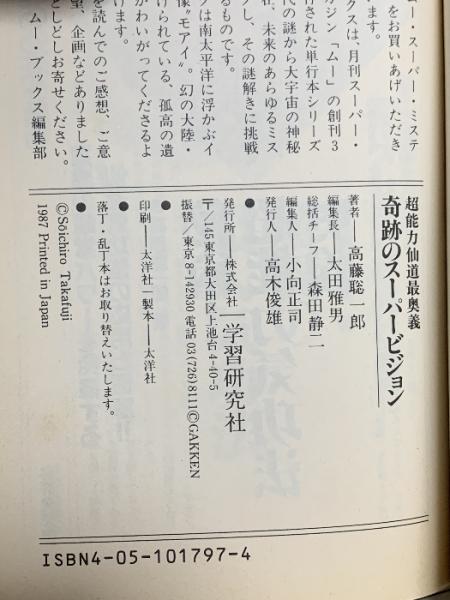 ムー・スーパー・ミステ
をお買いあげいただき
ます。
クスは、月刊スーパー・
ガジン「ムー」の創刊3
行された単行本シリーズ
代の謎から大宇宙の神秘
在、未来のあらゆるミス
プし、その謎解きに挑戦
るものです。
クは南太平洋に浮かぶイ
像“モアイ”。幻の大陸・
けられている、孤高の遺
かわいがってくださるよ
けます。
を読んでのご感想、ご意
望、企画などありました
しどしお寄せください。
ムー・ブックス編集部
超能力仙道最奥義
奇跡のスーパービジョン
著者──高藤聡一郎
編集長──太田雅男
総括チーフ──森田静二
編集人──小向正司
発行人──高木俊雄
●
発行所 株式会社 学習研究社
〒145東京都大田区上池台4-40-5
振替/東京8-142930電話03(726)8111©GAKKEN
●
印刷──太洋社 製本──太洋社
●
落丁・乱丁本はお取り替えいたします。
©Sōichiro Takafuji
1987 Printed in Japan
ISBN4-05-101797-4